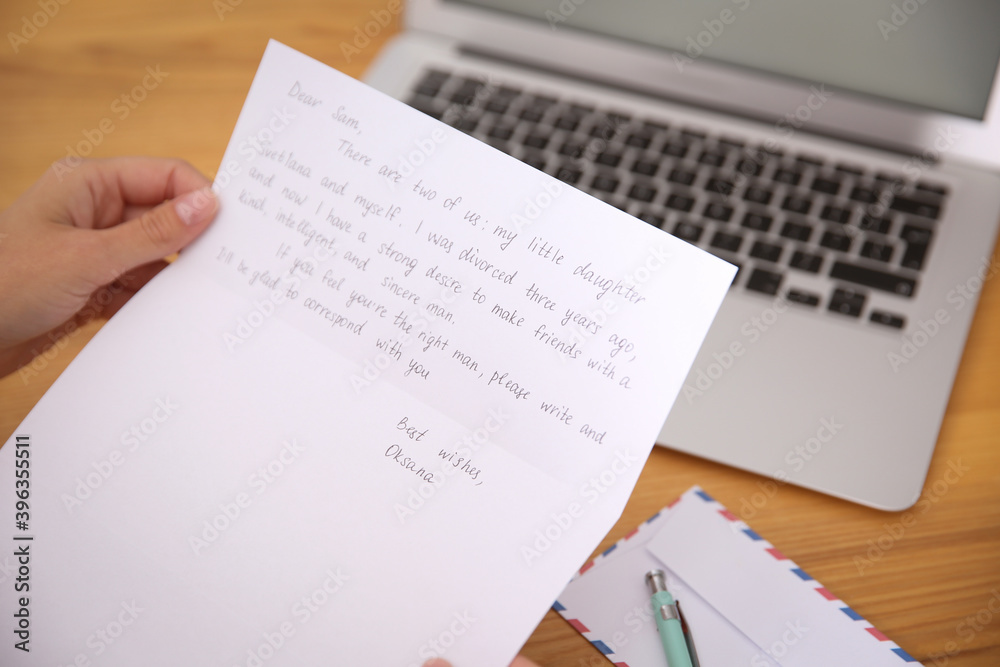 Dear Sam,
There are two of us: my little daughter
Svetlana and myself. I was divorced three years ago,
and now I have a strong desire to make friends with a
kind, intelligent, and sincere man.
If you feel you're the right man, please write and
I'll be glad to correspond with you
Best wishes,
Oksana
Adobe Stock | #396355511
Adobe Stock